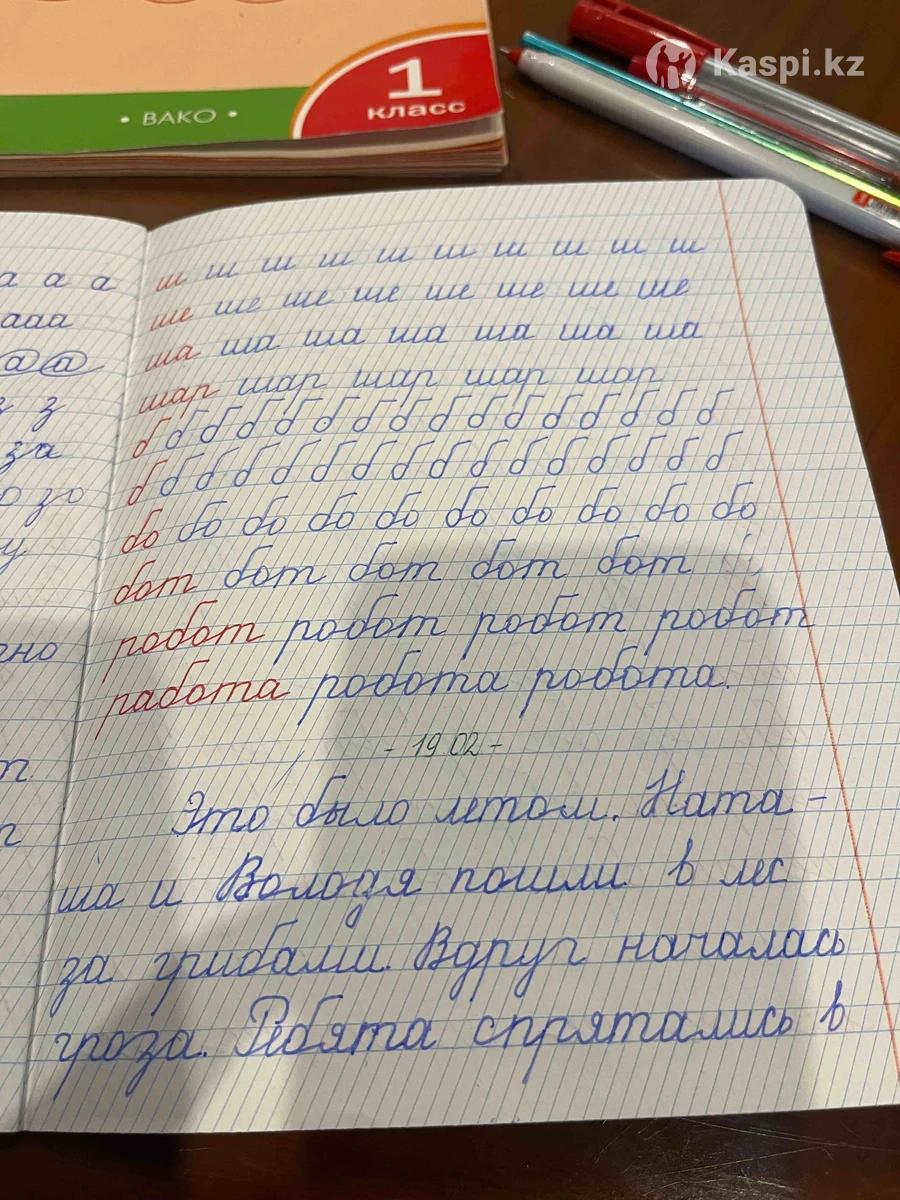 Kaspi.kz
1
класс
• ВАКО •
а а а
ааа
а а
з з
за
о зо
у
чно
т.
т
ш ш ш ш ш ш ш ш ш ш
ше ше ше ше ше ше ше ше
ша ша ша ша ша ша ша ша
шар шар шар шар шар
б б б б б б б б б б б б б б б б
б б б б б б б б б б б б б б б б
бо бо бо бо бо бо бо бо бо бо
бот бот бот бот бот
робот робот робот робот
работа робота робота.
- 19 02 -
Это было летом. Ната-
ша и Володя пошли в лес
за грибами. Вдруг началась
гроза. Ребята спрятались в